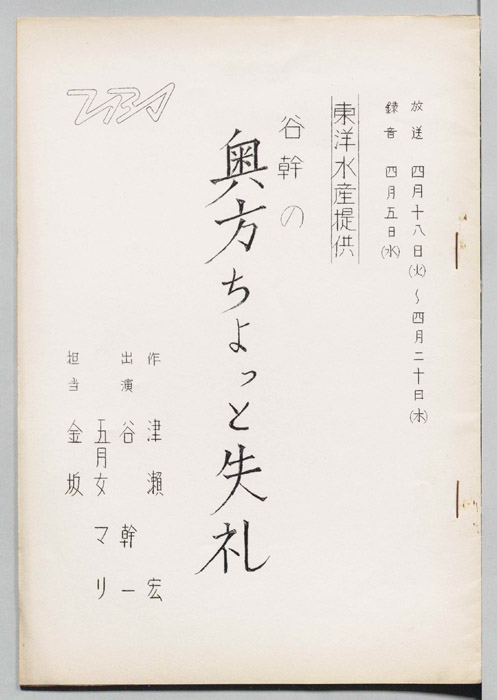 放送 四月十八日(火)~四月二十日(木)
録音 四月五日(水)
東洋水産提供
谷幹の
奥方ちょっと失礼
作 津瀬宏
出演 谷幹一
五月女マリ
担当 金坂
TBS